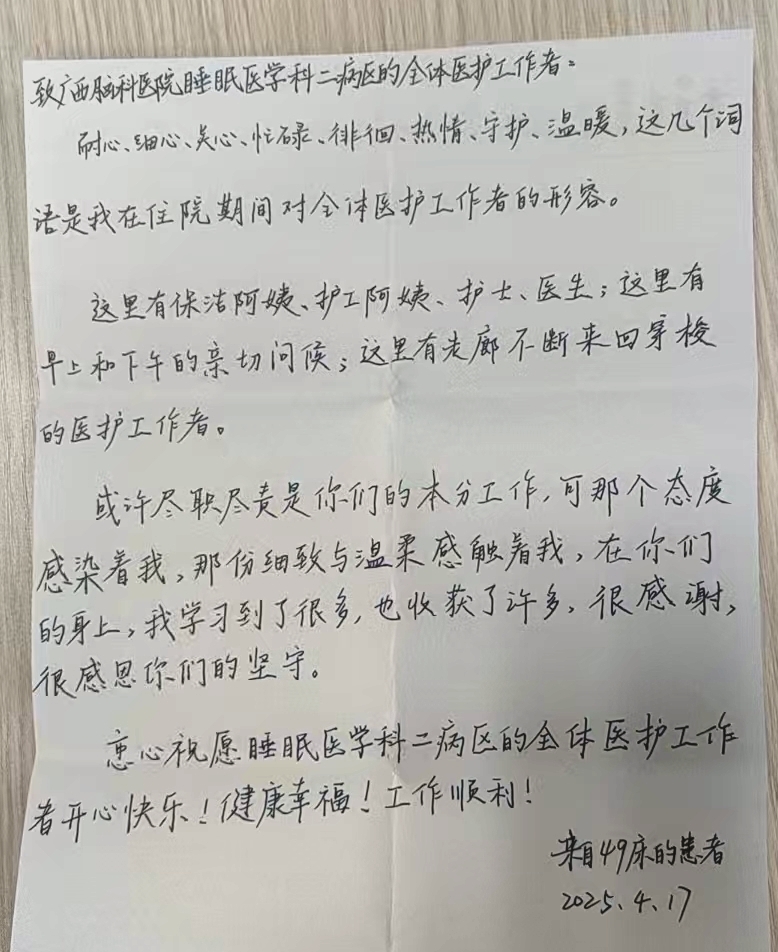 致广西脑科医院睡眠医学科二病区的全体医护工作者：
耐心、细心、关心、忙碌、徘徊、热情、守护、温暖，这几个词
语是我在住院期间对全体医护工作者的形容。
这里有保洁阿姨、护工阿姨、护士、医生；这里有
早上和下午的亲切问候；这里有走廊不断来回穿梭
的医护工作者。
或许尽职尽责是你们的本分工作，可那个态度
感染着我，那份细致与温柔感触着我，在你们
的身上，我学习到了很多，也收获了许多，很感谢，
很感恩你们的坚守。
衷心祝愿睡眠医学科二病区的全体医护工作
者开心快乐！健康幸福！工作顺利！
来自49床的患者
2025.4.17